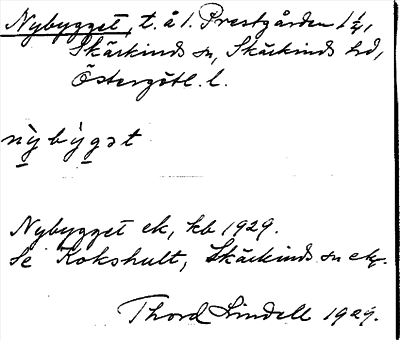 Nybygget, t. å 1. Prestgården 1 1/4,
Skärkinds sn, Skärkinds hd,
Östergötl. l.
nỳbỳgət
Nybygget ek, kb 1929.
Se Kokshult, Skärkinds sn ek.
Thord Lindell 1929.